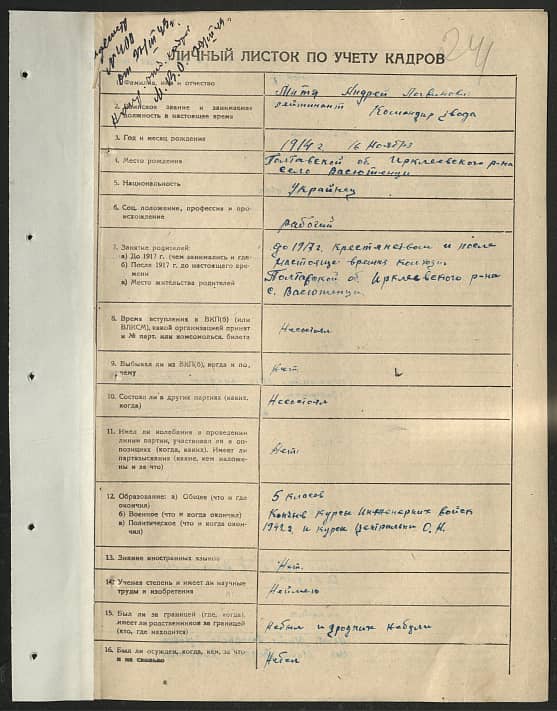 241
№ 400
ЛИЧНЫЙ ЛИСТОК ПО УЧЕТУ КАДРОВ
Фамилия, имя и отчество
Митя Андрей
2. Воинское звание и занимаемая должность в настоящее время
лейтинант Командир взвода
3. Год и месяц рождения
1914 г. 16 Ноября
4. Место рождения
Полтавской об. Ирклеевского р-на
село Васютенци
5. Национальность
Украинец
6. Соц. положение, профессия и про-
исхождение
рабочий
7. Занятие родителей:
а) До 1917 г. (чем занимались и где)
б) После 1917 г. до настоящего вре-
мени
в) Место жительства родителей
до 1917 г. крестянством и после
настояще время колхоз.
Полтавской об. Ирклеевского р-на
с. Васютенци
8. Время вступления в ВКП(б) (или
ВЛКСМ), какой организацией принят
и № парт. или комсомольск. билета
Несостоял
9. Выбывал ли из ВКП(б), когда и по-
чему
Нет
10. Состоял ли в других партиях (каких,
когда)
Несостоял
11. Имел ли колебания в проведении
линии партии, участвовал ли в оп-
позициях (когда, каких). Имеет ли
партвзыскания (какие, кем наложе-
ны и за что)
Нет
12. Образование: а) Общее (что и где
окончил)
б) Военное (что и когда окончил)
в) Политическое (что и когда окон-
чил)
5 класов
курсы Инженерних войск
1942 г. и курсы
13. Знание иностранных языков
Нет.
14. Ученая степень и имеет ли научные
труды и изобретения
Неимею
15. Был ли за границей (где, когда),
имеет ли родственников за границей
(кто, где находится)
Небыл и родних небули
16. Был ли осужден, когда, кем, за что
и на сколько